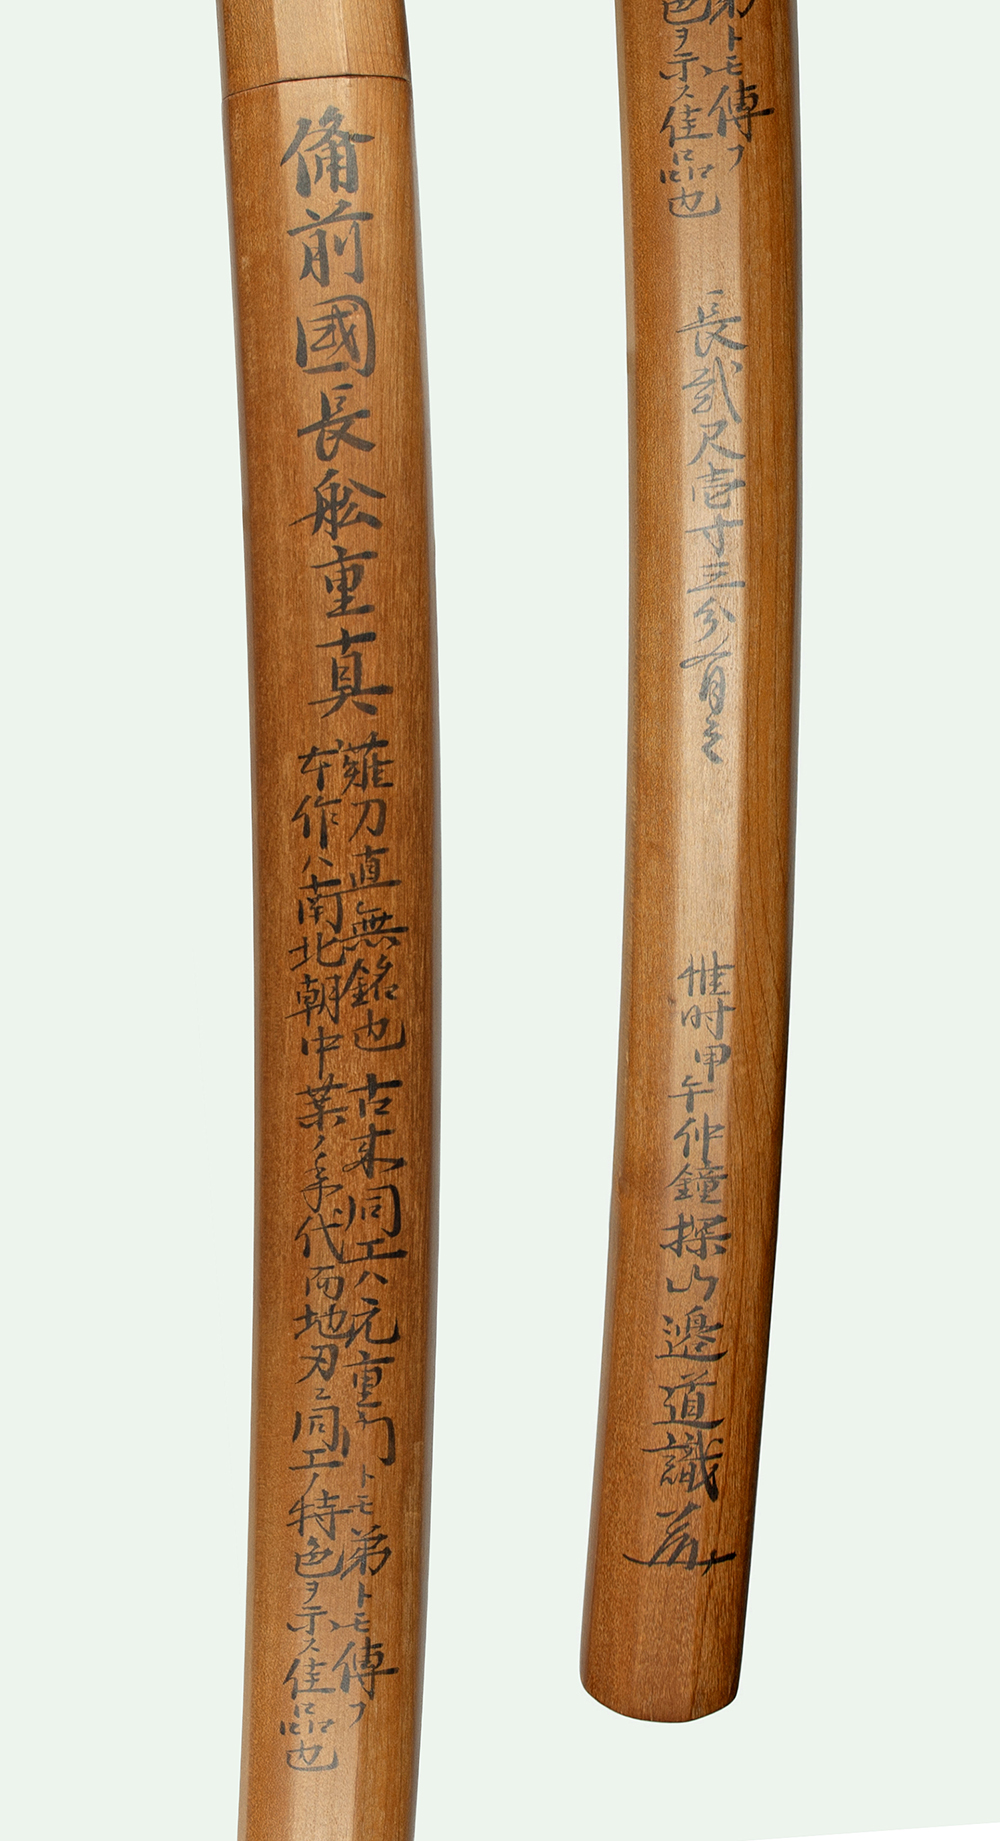 備前國長舩重真
薙刀直無銘也 古来同工ハ元重門トモ弟トモ傳フ
本作ハ南北朝中葉ノ年代而地刃ニ同工ノ特色ヲ示ス佳品也
弟トモ傳フ
色ヲ示ス佳品也
長貳尺壱寸三分有之
惟时甲午仲鐘探山邉道識